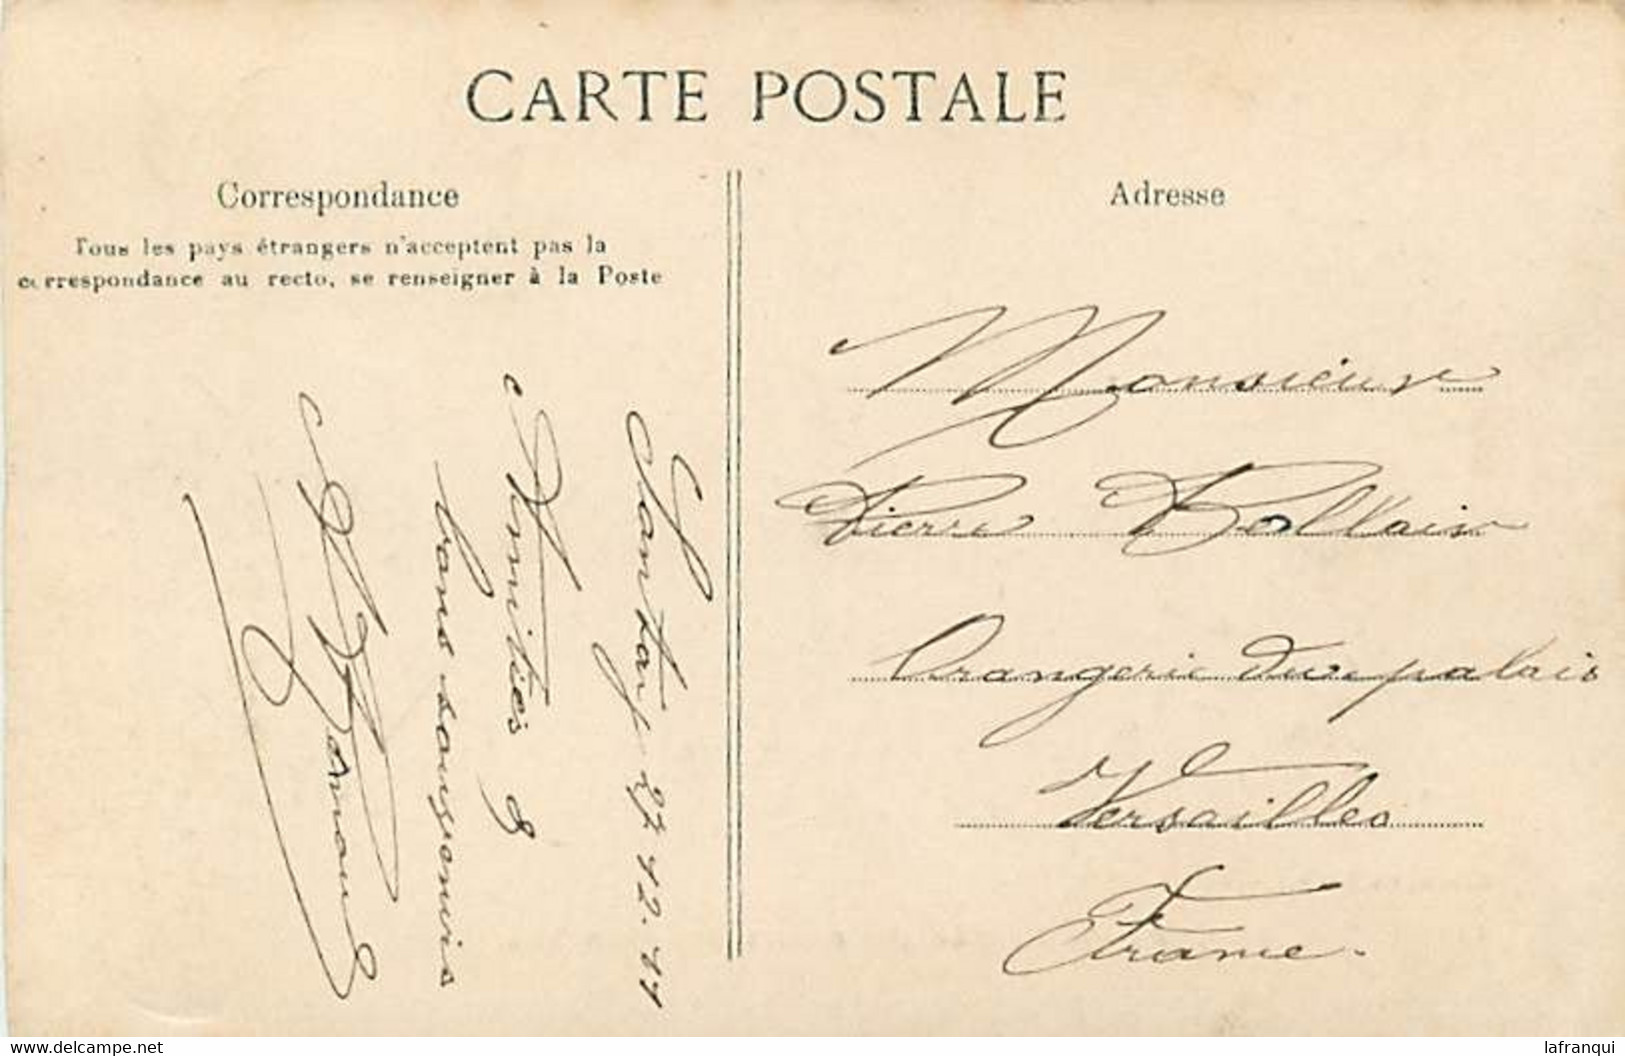 CARTE POSTALE
Correspondance
Tous les pays étrangers n'acceptent pas la
correspondance au recto, se renseigner à la Poste
27.12.11
Amitiés &
bons souvenirs
Adresse
Monsieur
Pierre Bollain
Orangerie du palais
Versailles
France.
delcampe.net
lafranqui